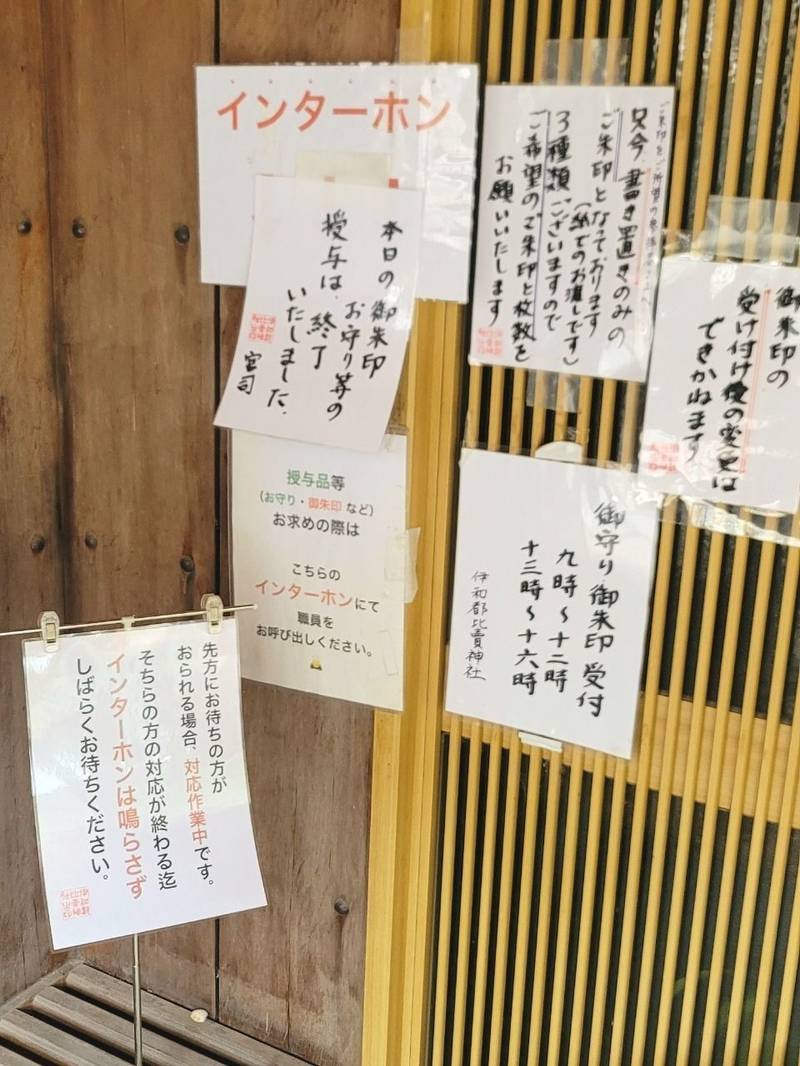 インターホン
本日の御朱印
お守り等の
授与は、終了
いたしました、
宮司
授与品等
(お守り・御朱印 など)
お求めの際は
こちらの
インターホンにて
職員を
お呼び出しください。
先方にお待ちの方が
おられる場合、対応作業中です。
そちらの方の対応が終わる迄
インターホンは鳴らさず
しばらくお待ちください。
只今、書き置きのみの
ご朱印となっております
(紙でのお渡しです)
3種類ございますので
ご希望のご朱印と枚数を
お願いいたします
御朱印の
受け付け後の変更は
できかねます
御守り御朱印 受付
九時〜十二時
十三時〜十六時
伊和都比賣神社